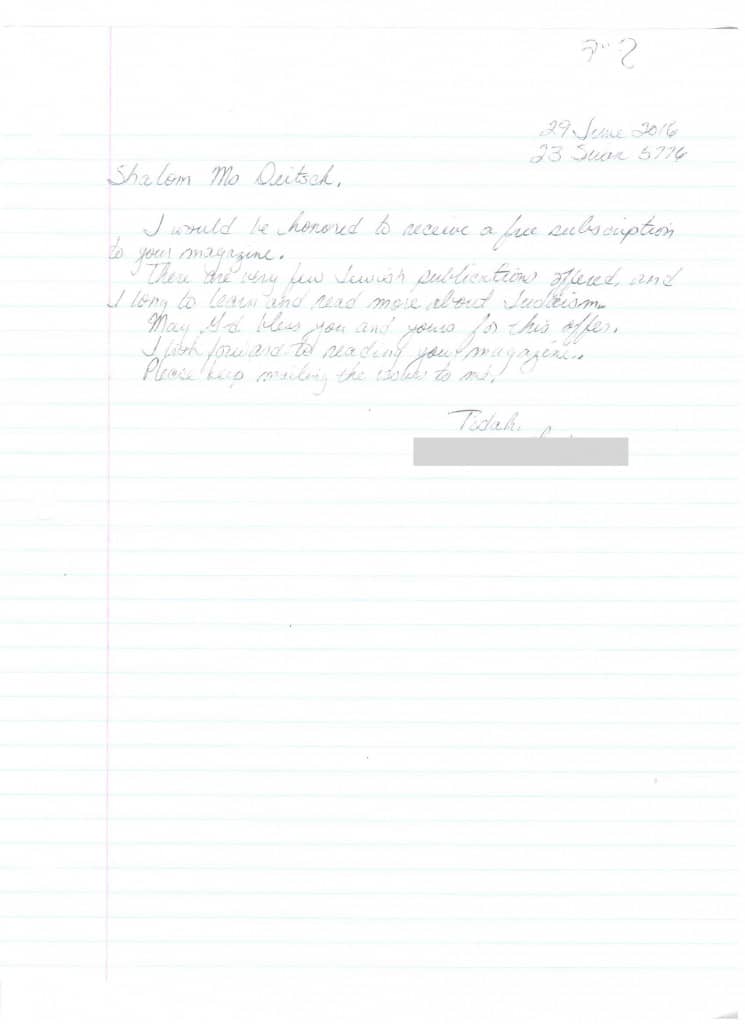 29 June 2016
23 Sivan 5776
Shalom Ms Deitsch,
I would be honored to receive a free subscription
to your magazine.
There are very few Jewish publications offered, and
I long to learn and read more about Judaism.
May G-d bless you and yours for this offer.
I look forward to reading your magazine.
Please keep mailing the issues to me.
Todah,